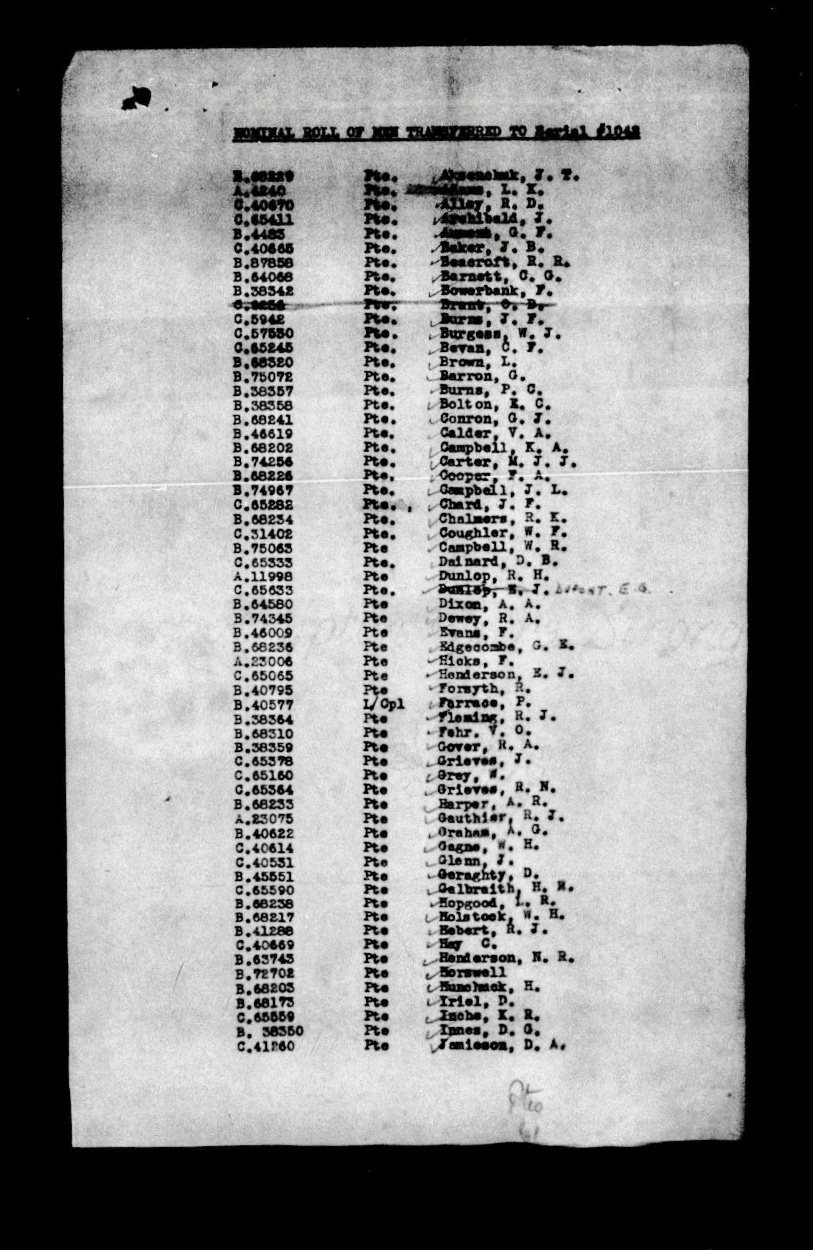 NOMINAL ROLL OF MEN TRANSFERRED TO Serial #1042
B.68229 Pte. J. T.
A.4240 Pte. L. K.
C.40670 Pte. Alley, R. D.
C.65411 Pte. Archibald, J.
B.4483 Pte. G. F.
C.40665 Pte. Baker, J. B.
B.87858 Pte. Beacroft, R. R.
B.64068 Pte. Barnett, C. G.
B.38342 Pte. Bowerbank, F.
Pte. Brant, O. B.
C.5942 Pte. Burns, J. F.
C.57530 Pte. Burgess, W. J.
C.65245 Pte. Bevan, C. F.
B.68320 Pte. Brown, L.
B.75072 Pte. Barron, G.
B.38357 Pte. Burns, P. C.
B.38358 Pte. Bolton, E. C.
B.68241 Pte. Conron, G. J.
B.46619 Pte. Calder, V. A.
B.68202 Pte. Campbell, K. A.
B.74256 Pte. Carter, M. J. J.
B.68226 Pte. Cooper, F. A.
B.74967 Pte. Campbell, J. L.
C.65282 Pte. Chard, J. F.
B.68234 Pte. Chalmers, R. K.
C.31402 Pte. Coughler, W. F.
B.75063 Pte Campbell, W. R.
C.65333 Pte. Dainard, D. B.
A.11998 Pte Dunlop, R. H.
C.65633 Pte. Dunlop, J. DUPONT. E G.
B.64580 Pte Dixon, A. A.
B.74345 Pte Dewey, R. A.
B.46009 Pte Evans, F.
B.68236 Pte Edgecombe, G. E.
A.23006 Pte Hicks, F.
C.65065 Pte Henderson, E. J.
B.40795 Pte Forsyth, R.
B.40577 L/Cpl Farrace, P.
B.38364 Pte Fleming, R. J.
B.68310 Pte Fehr. V. O.
B.38359 Pte Gover, R. A.
C.65378 Pte Grieves, J.
C.65160 Pte Grey, W.
C.65364 Pte Grieves, R. N.
B.68233 Pte Harper, A. R.
A.23075 Pte Gauthier, R. J.
B.40622 Pte Graham, A. G.
C.40614 Pte Gagne, W. H.
C.40531 Pte Glenn, J.
B.45551 Pte Geraghty, D.
C.65590 Pte Galbraith, H. M.
B.68238 Pte Hopgood, L. R.
B.68217 Pte Holstock, W. H.
B.41288 Pte Hebert, R. J.
C.40669 Pte Hay C.
B.63743 Pte Henderson, N. R.
B.72702 Pte Horswell
B.68203 Pte Hunchack, H.
B.68173 Pte Iriel, D.
C.65559 Pte Inche, K. R.
B. 38350 Pte Innes, D. G.
C.41260 Pte Jamieson, D. A.
Ptes
61